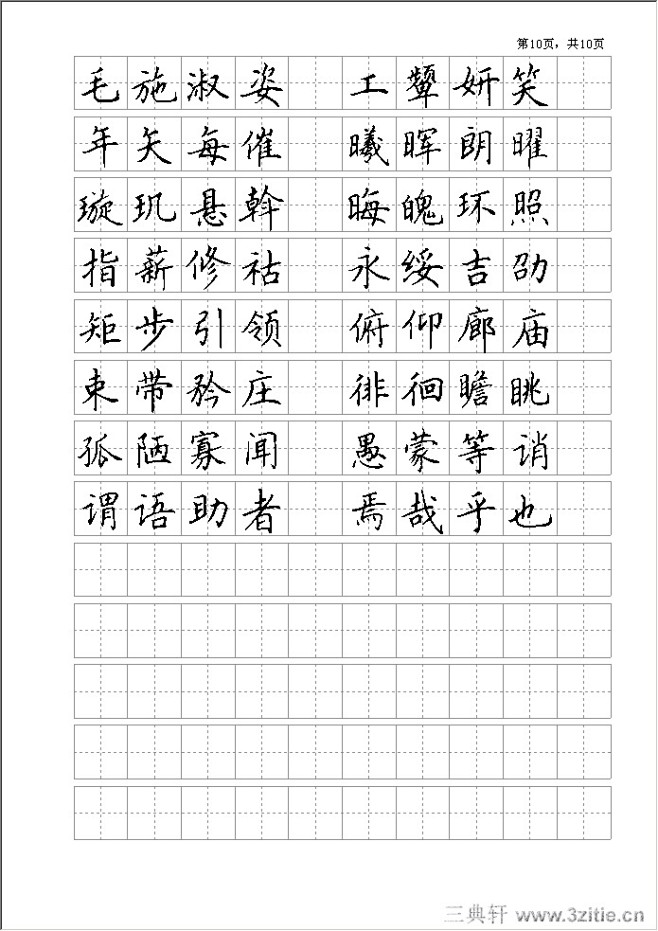 第10页，共10页
毛施淑姿 工颦妍笑
年矢每催 曦晖朗曜
璇玑悬斡 晦魄环照
指薪修祜 永绥吉劭
矩步引领 俯仰廊庙
束带矜庄 徘徊瞻眺
孤陋寡闻 愚蒙等诮
谓语助者 焉哉乎也
三典轩 www.3zitie.cn